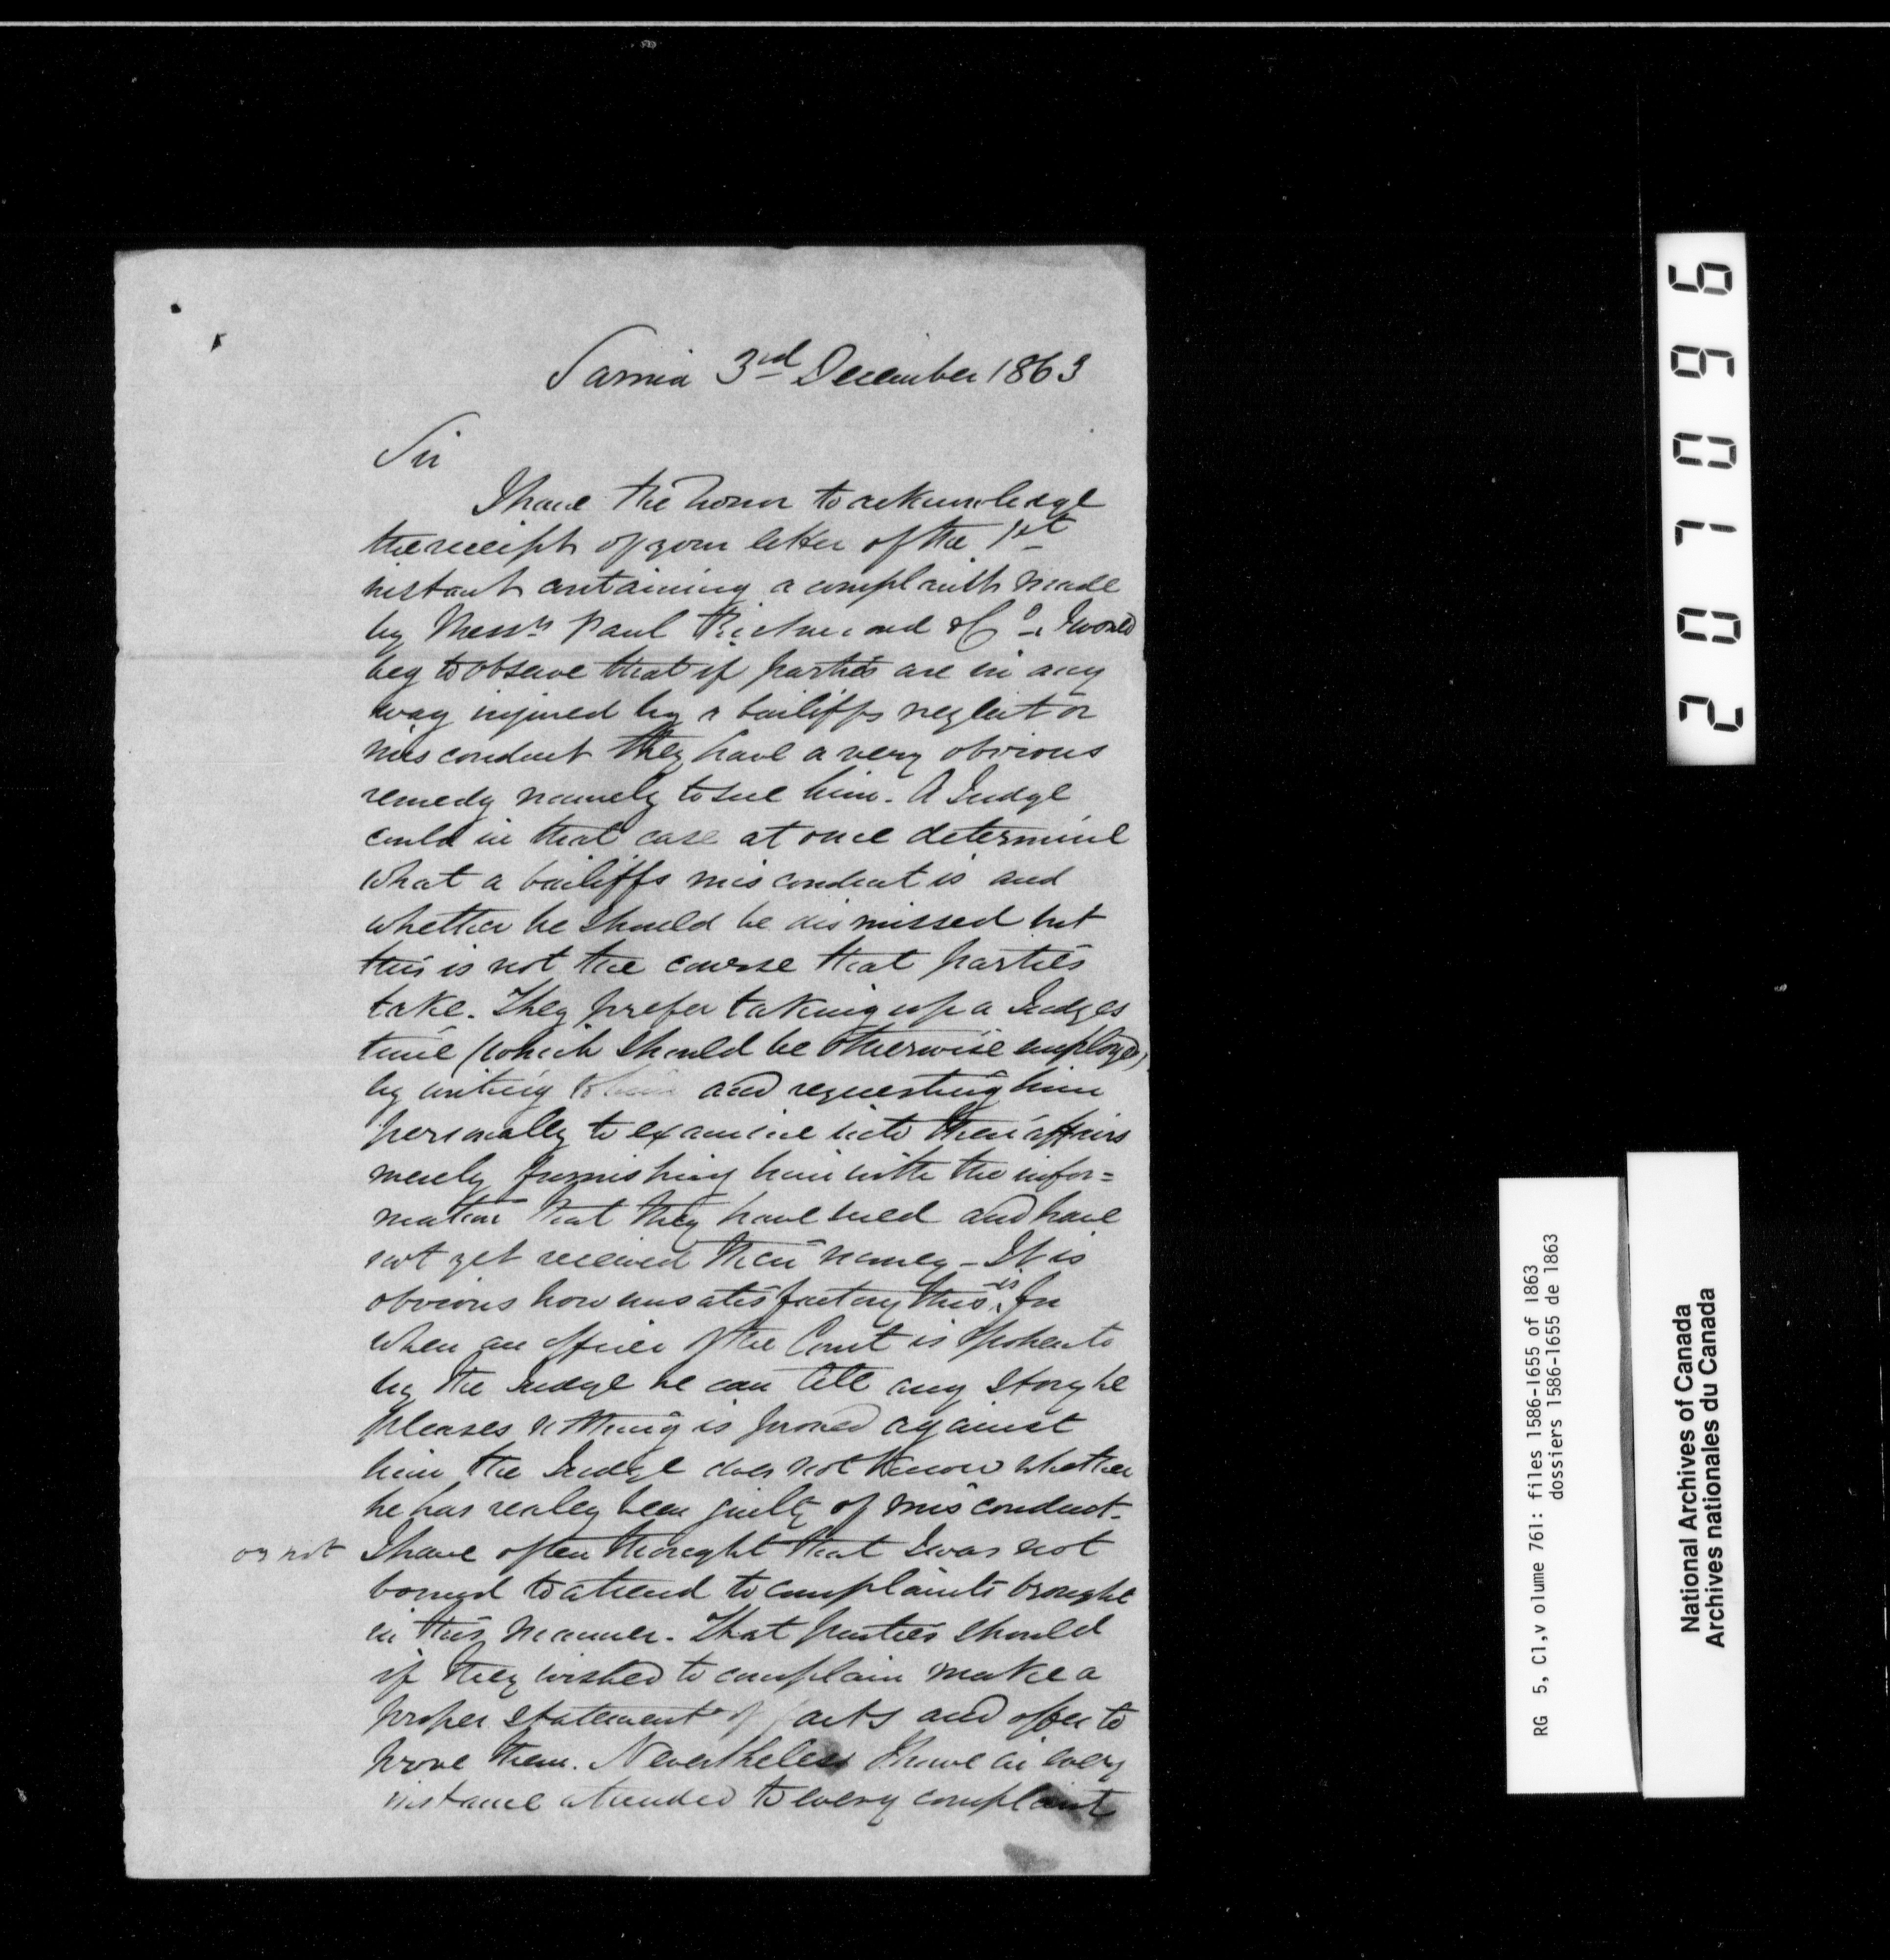 Sarnia 3rd December 1863
Sir
I have the honor to acknowledge
the receipt of your letter of the 1st
instant containing a complaint made
by Messrs Paul & Co. I would
beg to observe that if parties are in any
way injured by a bailiffs neglect or
misconduct they have a very obvious
remedy namely to sue him. A Judge
could in that case at once determine
what a bailiffs misconduct is and
whether he should be dismissed but
this is not the course that parties
take. They prefer taking up a Judges
time (which should be otherwise employed)
by writing to him and requesting him
personally to examine into their affairs
merely furnishing him with the infor=
mation that they have sued and have
not yet received their money - It is
obvious how unsatisfactory this is. For
when an officer of the Court is spoken to
by the Judge he can tell any story he
pleases nothing is proved against
him the Judge does not know whether
he has realey been guilty of misconduct.
or not
I have often thought that I was not
bound to attend to complaints brought
in this manner. That parties should
if they wished to complain make a
proper statement of facts and offer to
prove them. Nevertheless I have in every
instance attended to every complaint
207096
RG 5, C1,v olume 761: files 1586-1655 of 1863
dossiers 1586-1655 de 1863
National Archives of Canada
Archives nationales du Canada